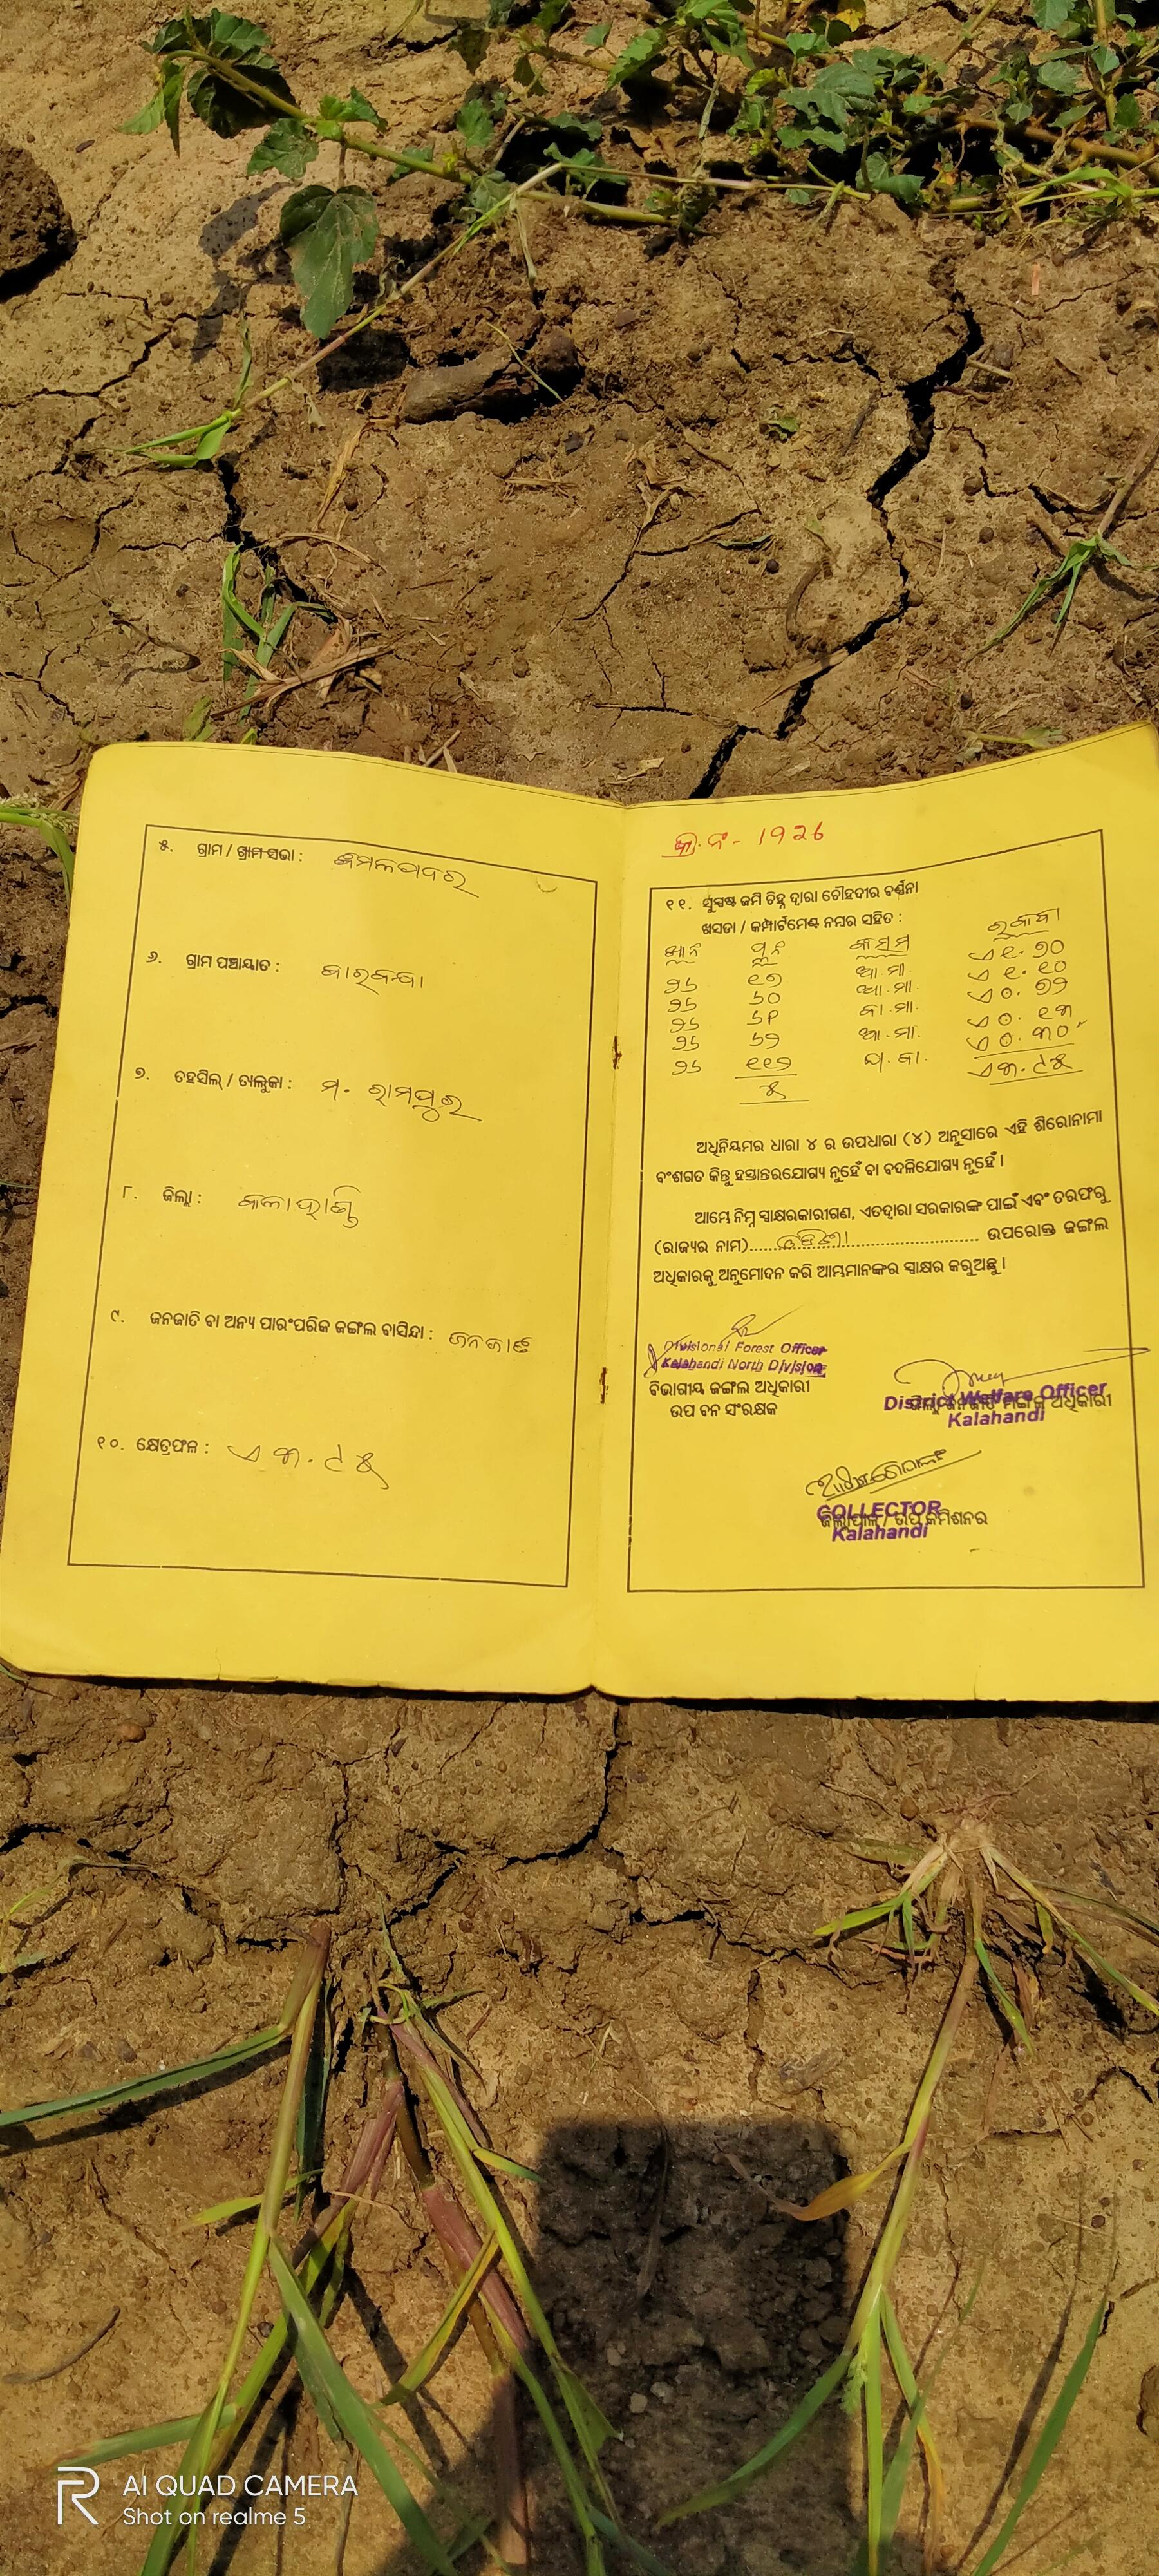 ୫. ଗ୍ରାମ / ଗ୍ରାମସଭା : କମଳପଦର
୬. ଗ୍ରାମ ପଞ୍ଚାୟାତ :
୭. ତହସିଲ୍ / ତାଲୁକା : ମ. ରାମପୁର
୮. ଜିଲ୍ଲା : କଳାହାଣ୍ଡି
୯. ଜନଜାତି ବା ଅନ୍ୟ ପାରଂପରିକ ଜଙ୍ଗଲ ବାସିନ୍ଦା : ଜନଜାତି
୧୦. କ୍ଷେତ୍ରଫଳ : ଏ ୩.୯୫
କ୍ର.ନଂ - 1926
୧୧. ସୁସ୍ପଷ୍ଟ ଜମି ଚିହ୍ନ ଦ୍ୱାରା ଚୌହଦୀର ବର୍ଣ୍ଣନା
ଖସଡା / କମ୍ପାର୍ଟମେଣ୍ଟ ନମ୍ବର ସହିତ :
ଖା.ନଂ ପ୍ଲ.ନଂ କିସମ ରକବା
୨୬ ୧୭ ଆ.ମା. ଏ ୧.୭୦
୨୬ ୬୦ ଆ.ମା. ଏ ୧.୧୦
୨୬ ଏ ୦.୭୨
୨୬ ୬୨ ଆ.ମା. ଏ ୦.୧୩
୨୬ ୧୧୨ ଏ ୦.୩୦
୫ ଏ ୩.୯୫
ଅଧିନିୟମର ଧାରା ୪ ର ଉପଧାରା (୪) ଅନୁସାରେ ଏହି ଶିରୋନାମା
ବଂଶଗତ କିନ୍ତୁ ହସ୍ତାନ୍ତରଯୋଗ୍ୟ ନୁହେଁ ବା ବଦଳିଯୋଗ୍ୟ ନୁହେଁ ।
ଆମ୍ଭେ ନିମ୍ନ ସ୍ୱାକ୍ଷରକାରୀଗଣ, ଏତଦ୍ୱାରା ସରକାରଙ୍କ ପାଇଁ ଏବଂ ତରଫରୁ
(ରାଜ୍ୟର ନାମ)....ଓଡ଼ିଶା.... ଉପରୋକ୍ତ ଜଙ୍ଗଲ
ଅଧିକାରକୁ ଅନୁମୋଦନ କରି ଆମ୍ଭମାନଙ୍କର ସ୍ୱାକ୍ଷର କରୁଅଛୁ ।
Divisional Forest Officer
Kalahandi North Division
ବିଭାଗୀୟ ଜଙ୍ଗଲ ଅଧିକାରୀ
ଉପ ବନ ସଂରକ୍ଷକ
District Welfare Officer
Kalahandi
ଜିଲ୍ଲା ଜନଜାତି ମଙ୍ଗଳ ଅଧିକାରୀ
COLLECTOR
Kalahandi
ଜିଲ୍ଲାପାଳ / ଉପ କମିଶନର
AI QUAD CAMERA
Shot on realme 5